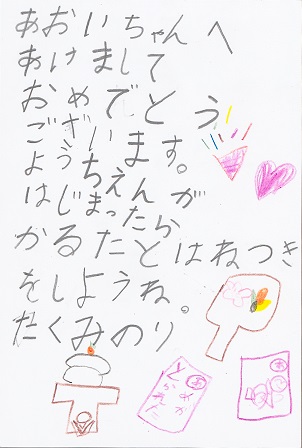 あおいちゃんへ
あけまして
おめでとう
ございます。
ようちえんが
はじまったら
かるたとはねつき
をしようね。
たくみのり